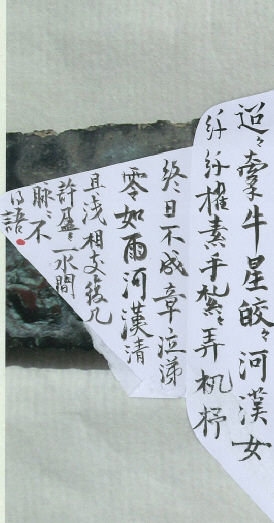 迢々牽牛星皎々河漢女
纤纤擢素手紮々弄机杼
終日不成章泣涕
零如雨河漢清
且浅相去復几
許盈々一水間
脉々不
得語